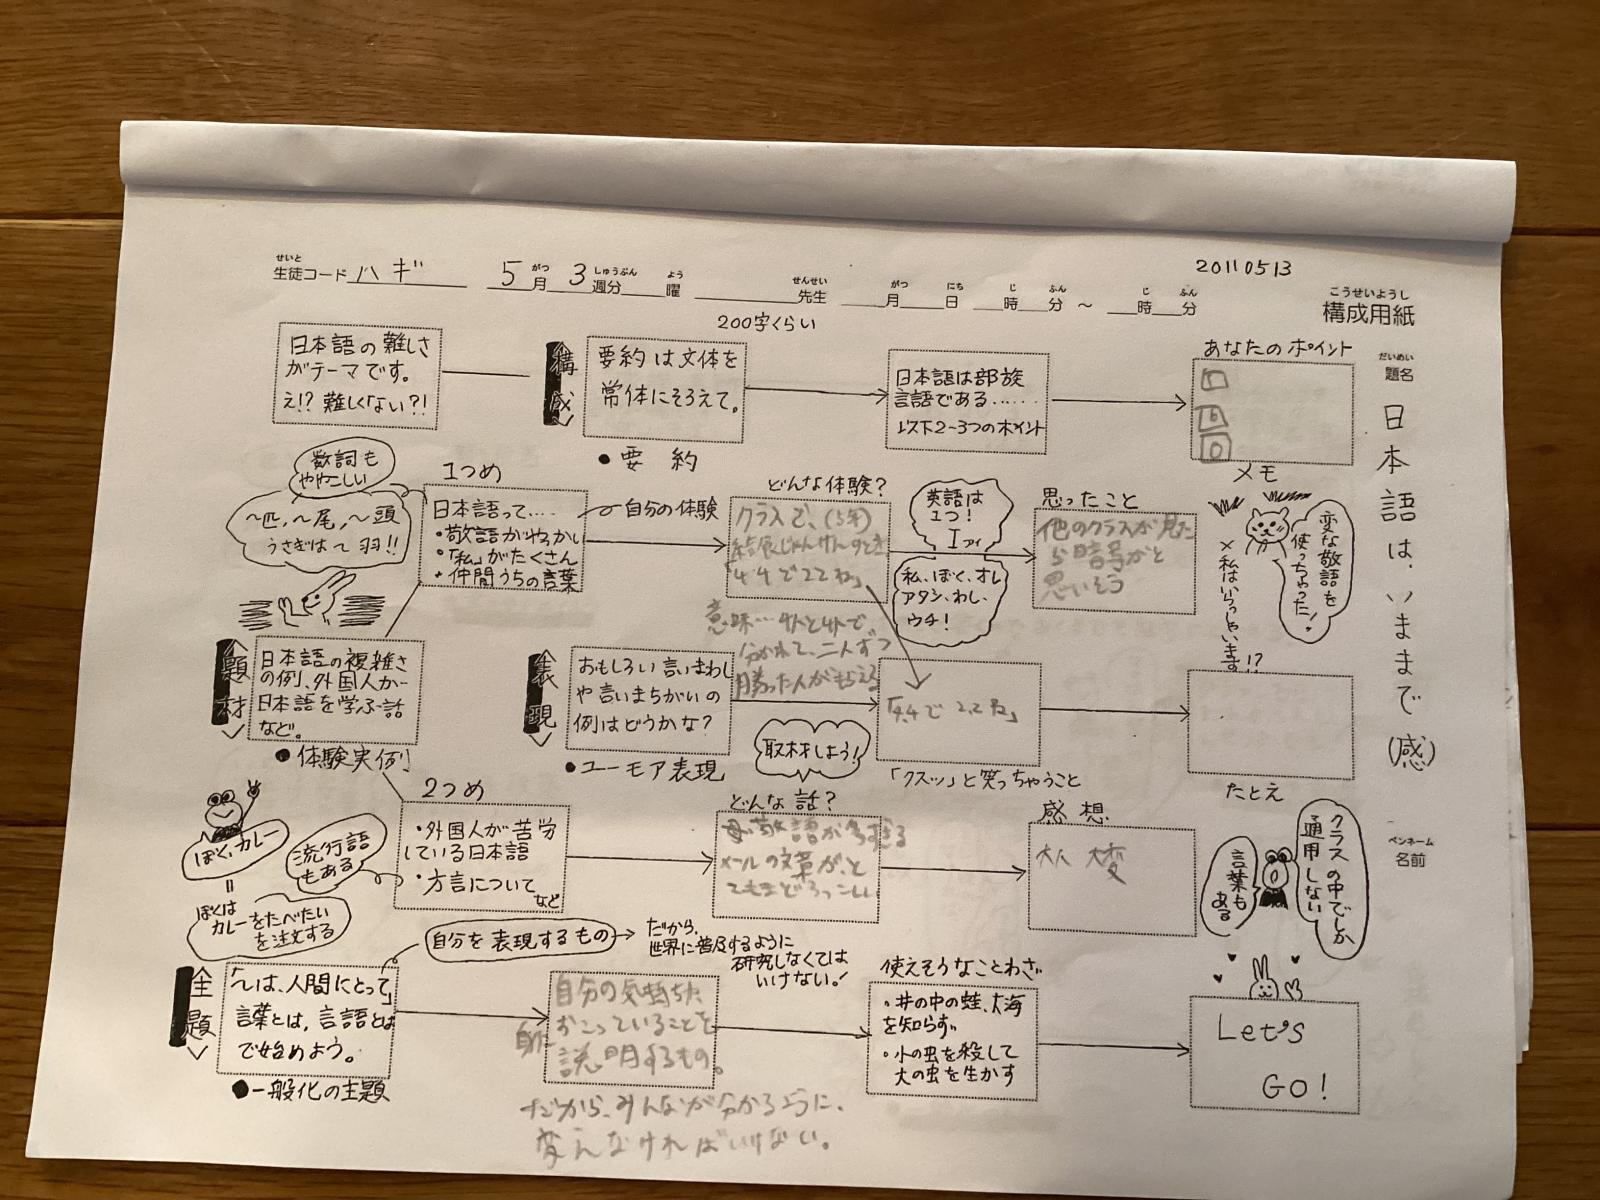 せいと
生徒コード ハギ 5月 3週分 曜 先生 月 日 時 分 ～ 時 分
がつ しゅうぶん よう せんせい がつ にち じ ふん じ ふん
20110513
こうせいようし
構成用紙
だいめい
題名
日本語は、いままで(感)
ペンネーム
名前
200字くらい
日本語の難しさ
がテーマです。
え!? 難しくない?!
構成
要約は文体を
常体にそろえて。
●要約
日本語は部族
言語である……
以下2~3つのポイント
あなたのポイント
メモ
数詞も
ややこしい
～匹,～尾,～頭
うさぎは～羽!!
1つめ
日本語って‥‥
・敬語がややこしい
・「私」がたくさん
・仲間うちの言葉
自分の体験
どんな体験?
クラスで、(5年)
結長じゃんけんのとき
「4,4で22ね」
意味…4人と4人で
分かれて、二人ずつ
勝った人がもらえる
英語は
1つ!
I アイ
私、ぼく、オレ
アタシ、わし、
ウチ!
思ったこと
他のクラスが見た
ら暗号かと
思いそう
変な敬語を
使っちゃった!
×私はいらっしゃいます!?
題材
日本語の複雑さ
の例、外国人が
日本語を学ぶ話
など。
●体験実例
表現
おもしろい言いまわし
や言いまちがいの
例はどうかな?
●ユーモア表現
取材しよう!
「4,4で22ね」
「クスッ」と笑っちゃうこと
たとえ
2つめ
・外国人が苦労
している日本語
・方言について
など
流行語
もある
ぼく、カレー
=
ぼくは
カレーをたべたい
を注文する
どんな話?
母、敬語が多すぎる
メールの文章が、と
てもまどろっこしい
感想
大人 大変
クラスの中でしか
通用しない
言葉も
ある
主題
「～は、人間にとって」
言葉とは, 言語とは
で始めよう。
●一般化の主題
自分を表現するもの
だから、
世界に普及するように
研究しなくては
いけない!
自分の気持ちた
おこっていることを
説明するもの。
だから、みんなが分かるように、
変えなければいけない。
使えそうなことわざ
・井の中の蛙、大海
を知らず
・小の虫を殺して
大の虫を生かす
Let's
GO!